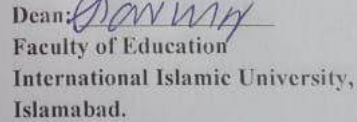 Dean:
Faculty of Education
International Islamic University,
Islamabad.